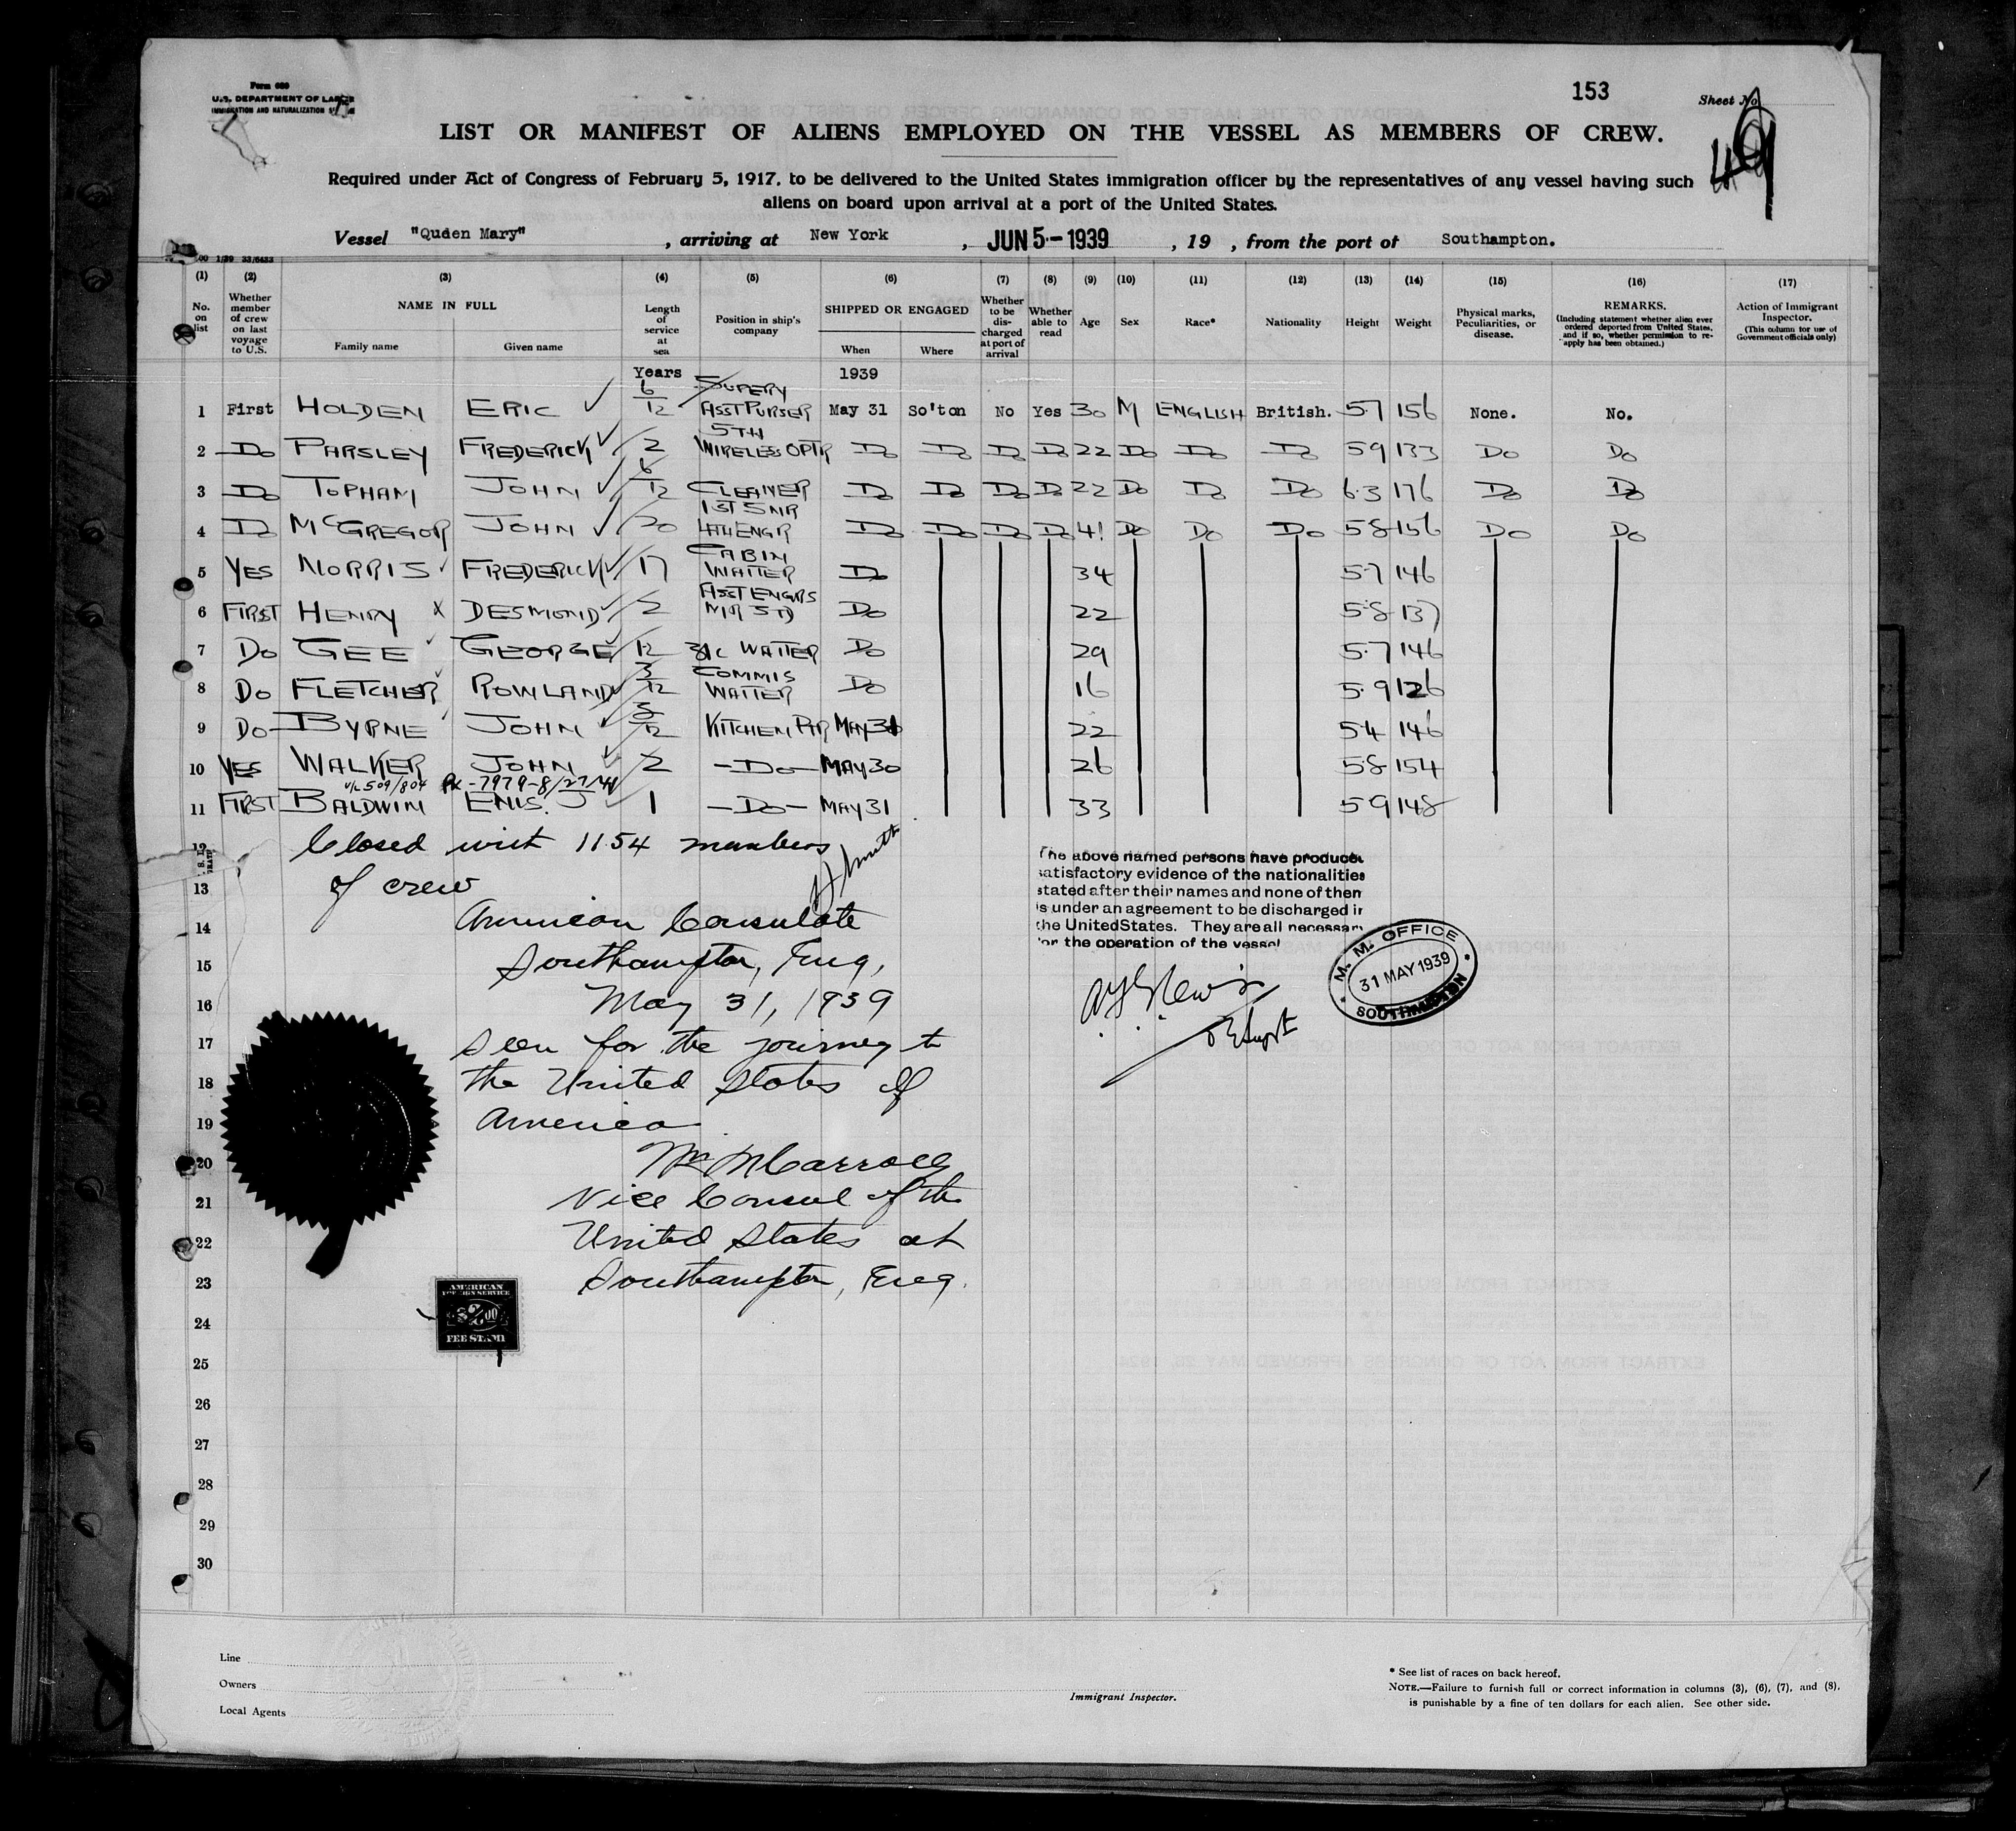 Form 680
U.S. DEPARTMENT OF LABOR
IMMIGRATION AND NATURALIZATION
153
Sheet No
49
LIST OR MANIFEST OF ALIENS EMPLOYED ON THE VESSEL AS MEMBERS OF CREW.
Required under Act of Congress of February 5, 1917, to be delivered to the United States immigration officer by the representatives of any vessel having such
aliens on board upon arrival at a port of the United States.
Vessel "Queen Mary" , arriving at New York , JUN 5-1939 , 19 , from the port of Southampton.
(1) (2) (3) (4) (5) (6) (7) (8) (9) (10) (11) (12) (13) (14) (15) (16) (17)
No. on list Whether member of crew on last voyage to U.S. NAME IN FULL Family name Given name Length of service at sea Position in ship's company SHIPPED OR ENGAGED When Where Whether to be discharged at port of arrival Whether able to read Age Sex Race* Nationality Height Weight Physical marks, Peculiarities, or disease. REMARKS. (Including statement whether alien ever ordered deported from United States, and if so, whether permission to re-apply has been obtained.) Action of Immigrant Inspector. (This column for use of Government officials only)
Years 1939
1 First HOLDEN ERIC 6/12 SUPERY ASST PURSER May 31 So'ton No Yes 30 M ENGLISH British. 5·7 156 None. No.
2 Do PARSLEY FREDERICK 2 5TH WIRELESS OPTR Do Do Do Do 22 Do Do Do 5 9 133 Do Do
3 Do TOPHAM JOHN 6/12 CLEANER Do Do Do Do 22 Do Do Do 6·3 176 Do Do
4 Do McGREGOR JOHN 20 1ST SNR 4TH ENGR Do Do Do Do 41 Do Do Do 5·8 156 Do Do
5 YES MORRIS FREDERICK 17 CABIN WAITER Do 34 5·7 146
6 FIRST HENRY X DESMOND 2 ASST ENGRS Do 22 5·8 137
7 Do GEE GEORGE 12 3/C WAITER Do 29 5·7 146
8 Do FLETCHER ROWLAND 3/12 COMMIS WAITER Do 16 5·9 126
9 Do BYRNE JOHN 3/12 KITCHEN PTR MAY 31 22 5·4 146
10 YES WALKER JOHN 2 -Do- MAY 30 26 5·8 154
-7979-8/27/41
11 FIRST BALDWIN ENIS. J 1 -Do- MAY 31 33 5 9 148
12 Closed with 1154 members
13 of crew
The above named persons have produce
satisfactory evidence of the nationalities
stated after their names and none of them
is under an agreement to be discharged in
the United States. They are all necessary
for the operation of the vessel
M. M. OFFICE
31 MAY 1939
SOUTHAMPTON
14 American Consulate
15 Southampton, Eng,
16 May 31, 1939
17 Seen for the journey to
18 the United States of
19 America
20 Wm M Carroll
21 Vice Consul of the
22 United States at
23 Southampton, Eng.
AMERICAN
FOREIGN SERVICE
$2.00
FEE STAMP
24
25
26
27
28
29
30
Line
Owners
Local Agents
Immigrant Inspector.
* See list of races on back hereof.
NOTE.—Failure to furnish full or correct information in columns (3), (6), (7), and (8),
is punishable by a fine of ten dollars for each alien. See other side.